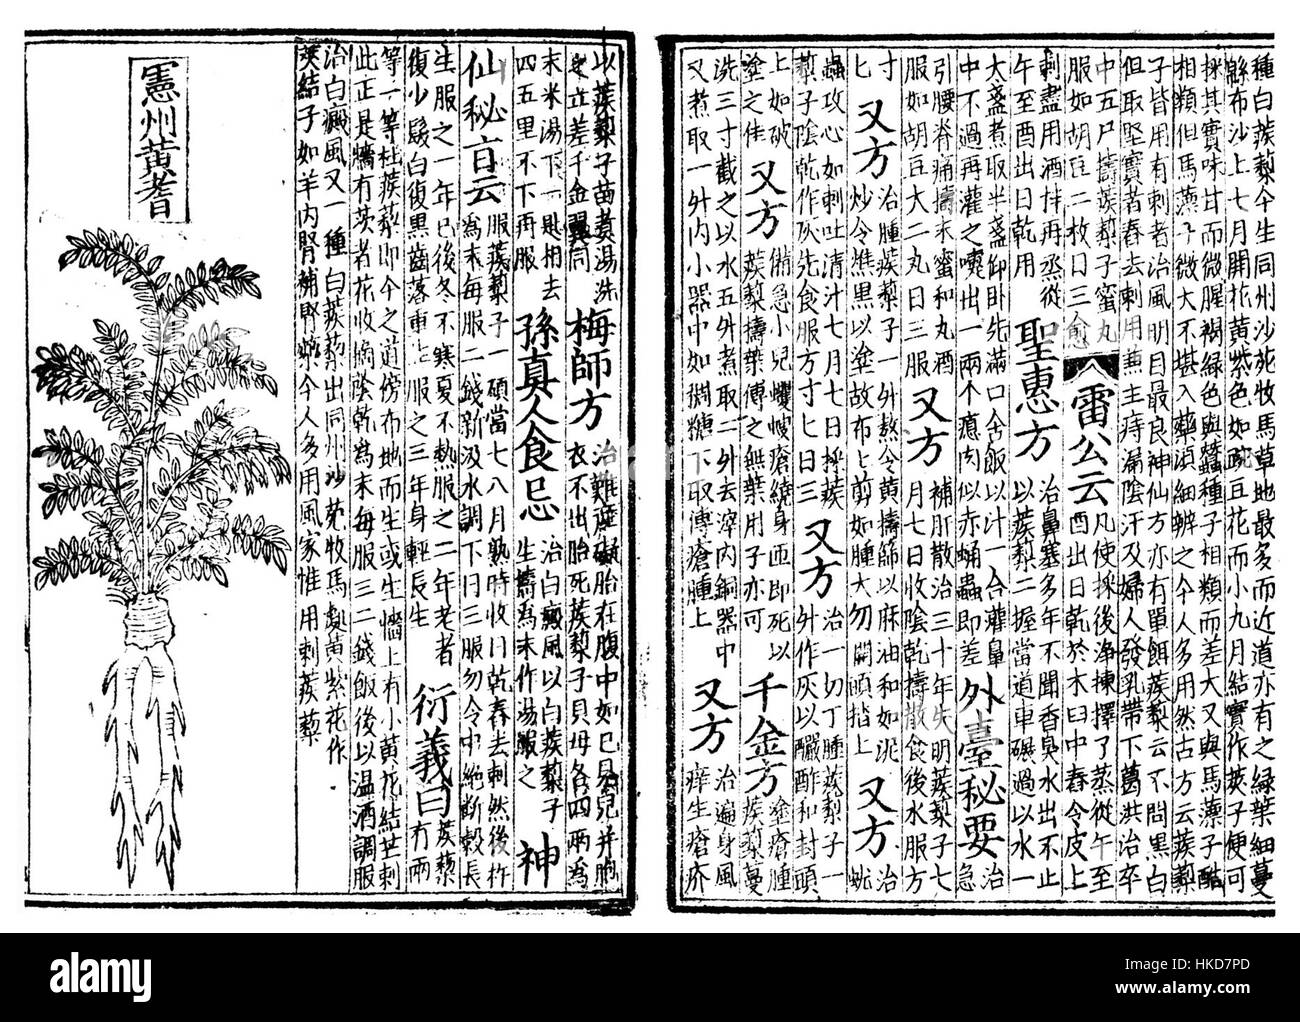 種白蒺藜今生同州沙苑牧馬草地最多而近道亦有之綠葉細蔓
緜布沙上七月開花黃紫色如豌豆花而小九月結實作莢子便可
採其實味甘而微腥褐綠色與蠶種子相類而差大又與馬薸子酷
相類但馬薸子微大不堪入藥須細辨之今人多用然古方云蒺藜
子皆用有刺者治風明目最良神仙方亦有單餌蒺藜云不問黑白
但取堅實者舂去刺用兼主痔漏陰汗及婦人發乳帶下葛洪治卒
中五尸擣蒺藜子蜜丸
服如胡豆二枚日三愈
雷公云
凡使採後淨揀擇了蒸從午至
酉出日乾於木臼中舂令皮上
刺盡用酒拌再蒸從
午至酉出日乾用
聖惠方
治鼻塞多年不聞香臭水出不止
以蒺藜二握當道車碾過以水一
大盞煮取半盞仰臥先滿口含飯以汁一合灌鼻
中不過再灌之嚏出一兩个瘜肉似赤蛹蟲即差
外臺秘要
治
急
引腰脊痛擣末蜜和丸酒
服如胡豆大二丸日三服
又方
補肝散治三十年失明蒺藜子七
月七日收陰乾擣散食後水服方
寸
匕
又方
治腫蒺藜子一升熬令黃擣篩以麻油和如泥
炒令燋黑以塗故布上剪如腫大勿開頭搨上
又方
治
蚘
蟲攻心如刺吐清汁七月七日採蒺
藜子陰乾作灰先食服方寸匕日三
又方
治一切丁腫蒺藜子一
升作灰以釅酢和封頭
上如破
塗之佳
又方
備急小兒蠼螋瘡繞身匝即死以
蒺藜擣葉傅之無葉用子亦可
千金方
塗瘡腫
蒺藜蔓
洗三寸截之以水五升煮取二升去滓內銅器中
又煮取一升內小器中如稠糖下取傅瘡腫上
又方
治遍身風
痒生瘡疥
以蒺藜子苗煮湯洗
之立差千金翼同
梅師方
治難產礙胎在腹中如已見兒并胞
衣不出胎死蒺藜子貝母各四兩為
末米湯下一匙相去
四五里不下再服
孫真人食忌
治白癜風以白蒺藜子
生擣為末作湯服之
神
仙秘旨云
服蒺藜子一碩當七八月熟時收日乾舂去刺然後杵
為末每服二錢新汲水調下日三服勿令中絕斷穀長
生服之一年已後冬不寒夏不熱服之二年老者
復少髮白復黑齒落重生服之三年身輕長生
衍義曰
蒺藜有兩
等一等杜蒺藜即今之道傍布地而生或生牆上有小黃花結芒刺
此正是牆有茨者花收摘陰乾為末每服三二錢飯後以温酒調服
治白癜風又一種白蒺藜出同州沙苑牧馬處黃紫花作
莢結子如羊內腎補腎藥今人多用風家惟用刺蒺藜
憲州黃耆
alamy stock photo
Image ID: HKD7PD
www.alamy.com